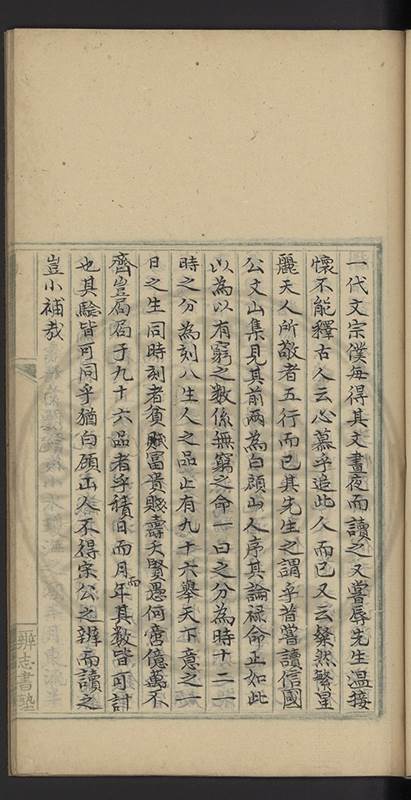 一代文宗僕每得其文晝夜而讀之又嘗辱先生温接
懷不能釋古人云心慕乎追此人而已又云粲然繁星
麗天人所敬者五行而已其先生之謂乎昔嘗讀信國
公文山集見其前兩為白顧山人序其論禄命正如此
以為以有窮之數係無窮之命一日之分為時十二一
時之分為刻八生人之品止有九十六舉天下意之一
日之生同時刻者貧賤富貴賤壽夭賢愚何啻億萬不
齊豈局局于九十六品者乎積日而月而年其數皆可討
也其驗皆可同乎猶白顧山人不得宋公之辨而讀之
豈小補哉
辨志書塾